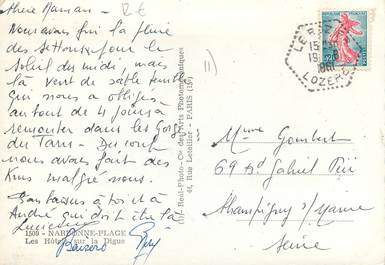 Chère Maman -
Nous avons fui la pluie
des Settons pour le
soleil du midi, mais
là vent de sable terrible
qui nous a obligés
au bout de 4 jours à
remonter dans les Gorges
du Tarn - Du coup
nous avons fait des
Kms malgré nous.
Bons baisers à toi et à
André qui doit être là
Lucienne
Baisers
1509 - NARBONNE-PLAGE
Les Hôtels sur la Digue
(1) Réal-Photo - Cie des Arts Photomécaniques
44, Rue Letellier - PARIS (15e)
11)
LOZERE
1961
0,20
Mme Gombert
69 Bd Gabriel Péri
Champigny s/ Marne
Seine